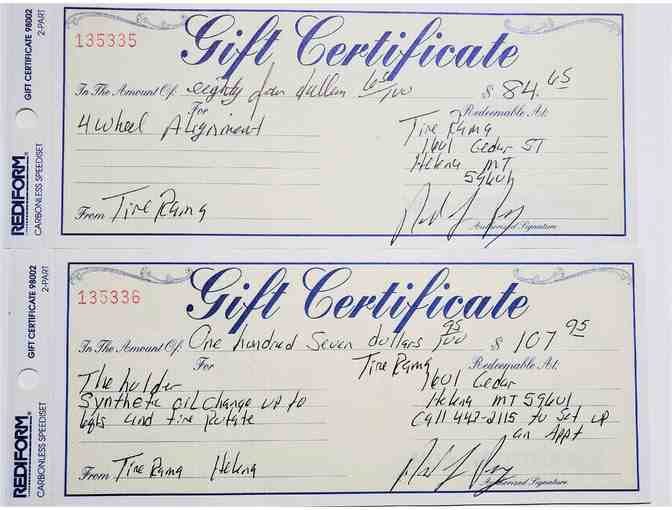 135335
Gift Certificate
In The Amount Of: eighty four dollars 65/100 $ 84.65
For
Redeemable At:
4 wheel Alignment
Tire Rama
1601 Cedar ST
Helena MT
59601
From Tire Rama
Authorized Signature
REDIFORM®
CARBONLESS SPEEDISET
GIFT CERTIFICATE 98002
2-PART
135336
Gift Certificate
In The Amount Of: One hundred Seven dollars 95/100 $ 107 95
For
Tire Rama
Redeemable At:
The holder
1601 Cedar
Synthetic oil change up to
Helena MT 59601
6qts and tire rotate
Call 442-2115 to Set up
an Appt
From Tire Rama Helena
Authorized Signature
REDIFORM®
CARBONLESS SPEEDISET
GIFT CERTIFICATE 98002
2-PART